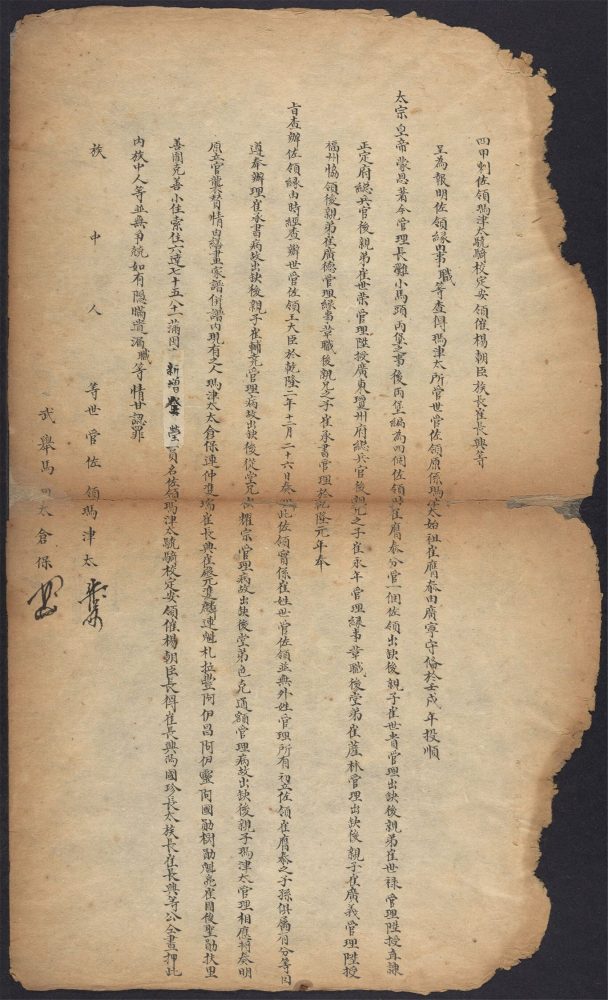 四甲喇佐領瑪津太驍騎校定安領催楊朝臣族長崔長興等
呈為報明佐領緣由事職等查得瑪津太所管世管佐領原係瑪津太始祖崔膺泰由廣寧守備於壬戌年投順
太宗皇帝蒙恩著令管理長雞小馬頭兩堡之事後兩堡編為四個佐領時崔膺泰分管一個佐領出缺後親子崔世貴管理出缺後親弟崔世祿管理陞授直隸
正定府總兵官後親弟崔世榮管理陞授廣東瓊州府總兵官後親兄之子崔永年管理緣事革職後堂弟崔蘆林管理出缺後親子崔廣義管理陞授
福州協領後親弟崔廣德管理緣事革職後親兄之子崔承書管理於乾隆元年奉
旨查辦佐領緣由時經查辦世管佐領王大臣於乾隆二年十二月二十六日奉 此佐領實係崔姓世管佐領並無外姓管理所有初立佐領崔膺泰之子孫俱屬有分等因
遵奉辦理崔承書病故出缺後親子崔輔堯管理病故出缺後從堂兄崔耀宗管理病故出缺後堂弟色克通額管理病故出缺後親子瑪津太管理相應將奏明
原立官襲替情由繕畫家譜併譜內現有之人瑪津太太倉保連仲雙瑞崔長興崔慶元雙麟連魁札拉豐阿伊昌阿伊靈阿國勛樹勛魁亮崔目俊聖勛扶里
善圖克善小住索住六達七十五八十一滿囤 新增 瑩 一員名佐領瑪津太驍騎校定安領催楊朝臣長得崔長興尚國珍長太族長崔長興等公仝畫押此
內族中人等並無爭競如有隱瞞遺漏職等情甘認罪
族中人等世管佐領瑪津太
武舉馬 太倉保